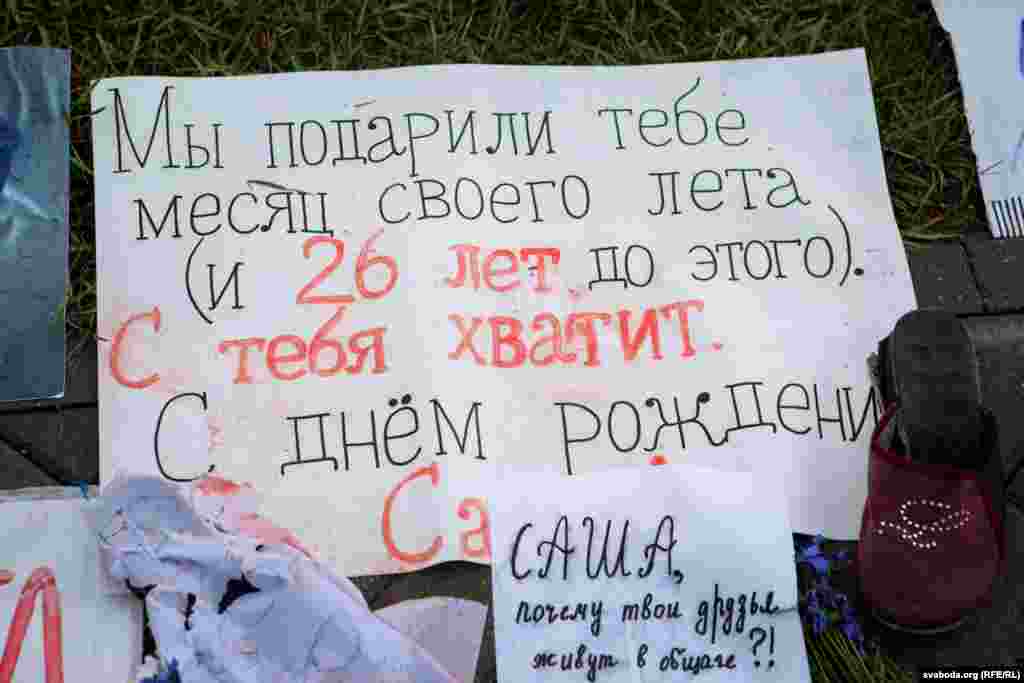 Мы подарили тебе
месяц своего лета
(и 26 лет до этого).
С тебя хватит.
С днём рождени
Са
САША,
почему твои друзья
живут в общаге ?!
svaboda.org (RFE/RL)